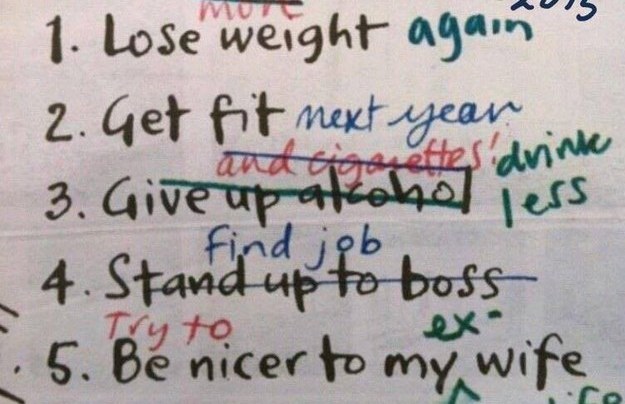 more
1. Lose weight again
2. Get fit next year
and cigarettes! drink
3. Give up alcohol less
find job
4. Stand up to boss
Try to ex-
5. Be nicer to my wife